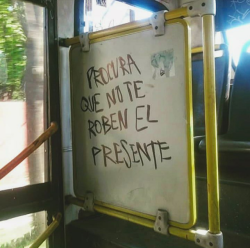 PROCURA
QUE NO TE
ROBEN EL
PRESENTE